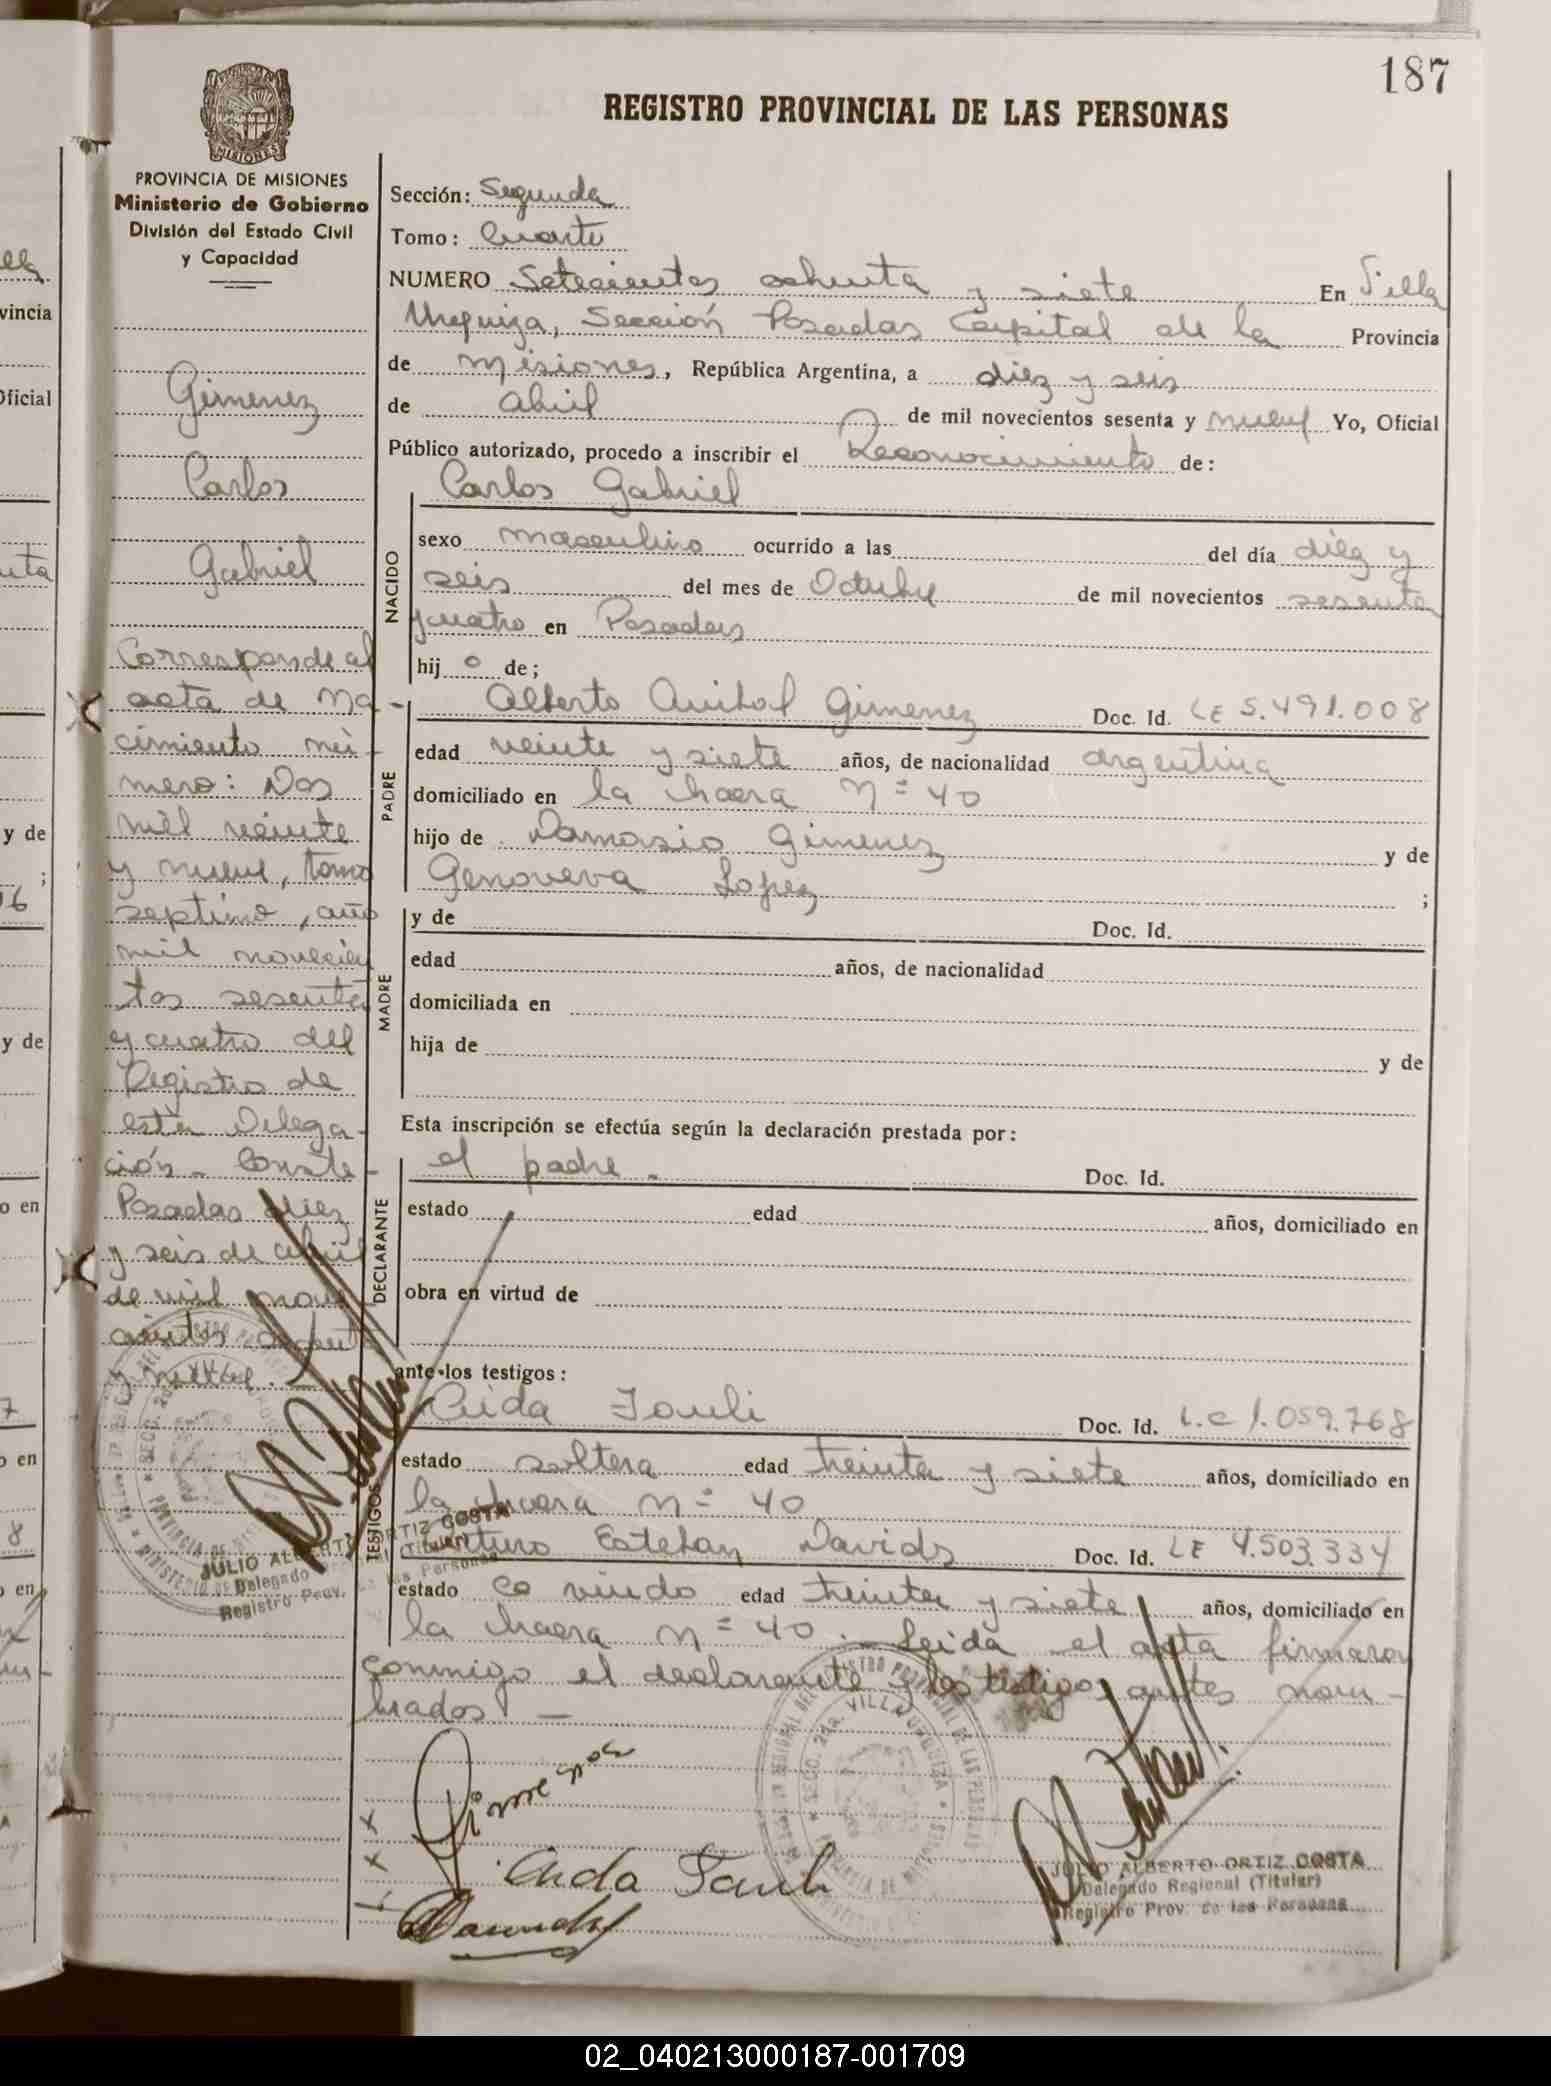 187
REGISTRO PROVINCIAL DE LAS PERSONAS
MISIONES
PROVINCIA DE MISIONES
Ministerio de Gobierno
División del Estado Civil
y Capacidad
Gimenez
Carlos
Gabriel
Corresponde al
acta de na-
cimiento nú-
mero: Dos
mil veinte
y nueve, tomo
septimo, año
mil novecien
tos sesenta
y cuatro del
Registro de
esta Delega-
ción. Conste-
Posadas diez
y seis de abril
de mil nove
cientos
y nueve.
Sección: Segunda
Tomo: Cuarto
NUMERO Setecientos ochenta y siete En Villa
Urquiza, Sección Posadas Capital de la Provincia
de Misiones, República Argentina, a diez y seis
de abril de mil novecientos sesenta y nueve Yo, Oficial
Público autorizado, procedo a inscribir el Reconocimiento de:
Carlos Gabriel
NACIDO
sexo masculino ocurrido a las del día diez y
seis del mes de Octubre de mil novecientos sesenta
y cuatro en Posadas
hij o de;
PADRE
Alberto Anibal Gimenez Doc. Id. LE 5.491.008
edad veinte y siete años, de nacionalidad argentina
domiciliado en la chacra n= 40
hijo de Damasio Gimenez y de
Genoveva Lopez ;
MADRE
y de Doc. Id.
edad años, de nacionalidad
domiciliada en
hija de y de
Esta inscripción se efectúa según la declaración prestada por:
DECLARANTE
el padre. Doc. Id.
estado edad años, domiciliado en
obra en virtud de
ante los testigos:
TESTIGOS
Doc. Id. L.C 1.059.768
estado soltera edad treinta y siete años, domiciliado en
la chacra n= 40
Arturo Esteban Davids Doc. Id. LE 4.503.334
estado co viudo edad treinta y siete años, domiciliado en
la chacra n= 40. Leida el acta firmaron
conmigo el declarante y los testigos antes nom-
brados. —
Gimenez
JULIO ALBERTO ORTIZ COSTA
Delegado Regional (Titular)
Registro Prov. de las Personas
JULIO ALBERTO ORTIZ COSTA
Delegado Regional (Titular)
Registro Prov. de las Personas
02_040213000187-001709